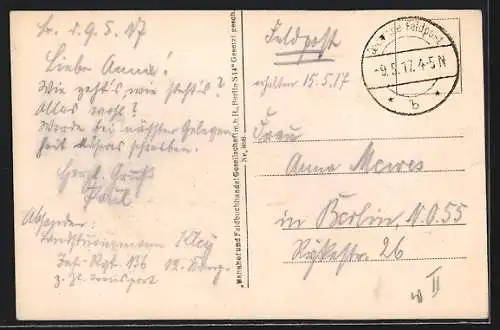 Br. d. 9.5.17
Liebe Anna!
Wie geht's, wie steht's?
Alles wohl?
Werde bei nächster Gelegen
heit schreiben.
Herzl. Gruß
Paul
Absender:
Landsturmmann
Inf. Rgt. 136
z. Zt. Transport
"Bahnhof und Feldbuchhandel Gesellschaft m. b. H., Berlin S.14" Gesetzl. gesch.
Feldpost
erhalten 15.5.17
Deutsche Feldpost
-9.5.17.4-5N
* b *
Frau
Anna Mewes
in Berlin, N.O.55
Rykestr. 26
II